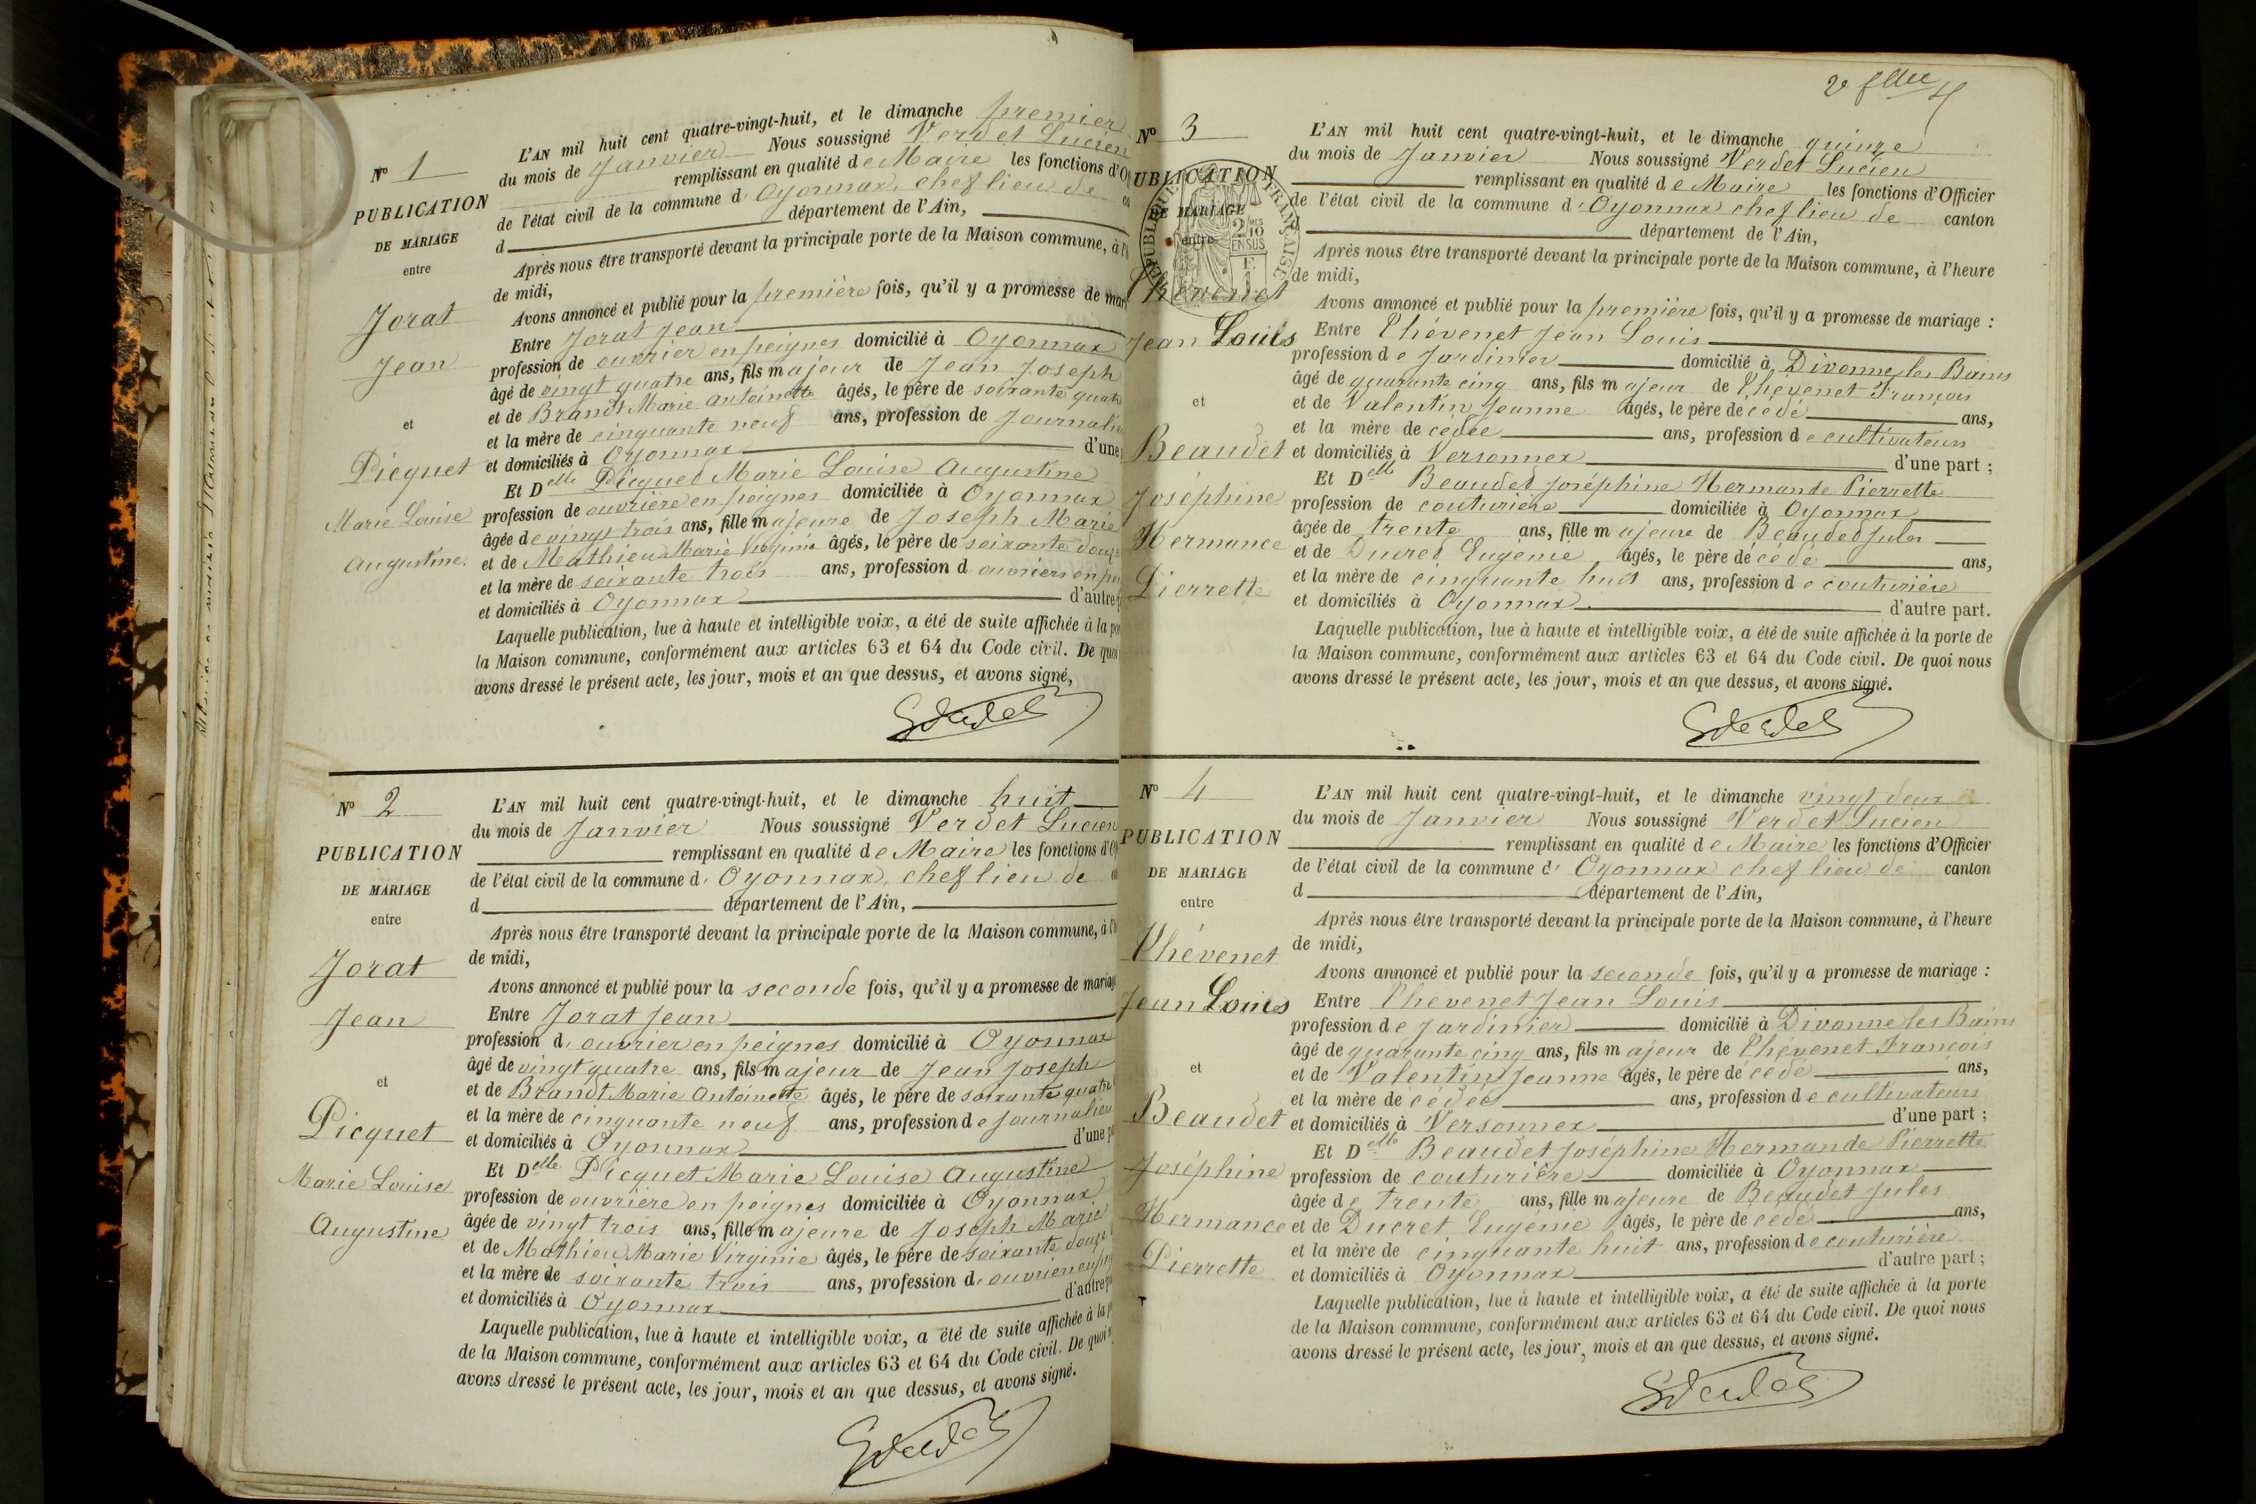 Nº 1
PUBLICATION
DE MARIAGE
entre
Jorat
Jean
et
Picquet
Marie Louise
Augustine.
L'AN mil huit cent quatre-vingt-huit, et le dimanche premier
du mois de Janvier Nous soussigné Verdet Lucien
remplissant en qualité de Maire les fonctions d'O
de l'état civil de la commune d' Oyonnax, chef lieu de
d département de l'Ain,
Après nous être transporté devant la principale porte de la Maison commune, à l'
de midi,
Avons annoncé et publié pour la première fois, qu'il y a promesse de mar
Entre Jorat Jean
profession de ouvrier en peignes domicilié à Oyonnax
âgé de vingt quatre ans, fils majeur de Jean Joseph
et de Brandt Marie Antoinette âgés, le père de soixante quatre
et la mère de cinquante neuf ans, profession de Journali
et domiciliés à Oyonnax d'une
Et Delle Picquet Marie Louise Augustine
profession de ouvrière en peignes domiciliée à Oyonnax
âgée de vingt trois ans, fille majeure de Joseph Marie
et de Mathieu Marie Virginie âgés, le père de soixante douze
et la mère de soixante trois ans, profession d ouvriers en pei
et domiciliés à Oyonnax d'autre
Laquelle publication, lue à haute et intelligible voix, a été de suite affichée à la por
la Maison commune, conformément aux articles 63 et 64 du Code civil. De quoi
avons dressé le présent acte, les jour, mois et an que dessus, et avons signé,
Nº 2
PUBLICATION
DE MARIAGE
entre
Jorat
Jean
et
Picquet
Marie Louise
Augustine
L'AN mil huit cent quatre-vingt-huit, et le dimanche huit
du mois de Janvier Nous soussigné Verdet Lucien
remplissant en qualité de Maire les fonctions d'O
de l'état civil de la commune d' Oyonnax, chef lieu de
d département de l'Ain,
Après nous être transporté devant la principale porte de la Maison commune, à l'
de midi,
Avons annoncé et publié pour la seconde fois, qu'il y a promesse de mariag
Entre Jorat Jean
profession d' ouvrier en peignes domicilié à Oyonnax
âgé de vingt quatre ans, fils majeur de Jean Joseph
et de Brandt Marie Antoinette âgés, le père de soixante quatre
et la mère de cinquante neuf ans, profession de Journalier
et domiciliés à Oyonnax d'une p
Et Delle Picquet Marie Louise Augustine
profession de ouvrière en peignes domiciliée à Oyonnax
âgée de vingt trois ans, fille majeure de Joseph Marie
et de Mathieu Marie Virginie âgés, le père de soixante douze
et la mère de soixante trois ans, profession d' ouvrier en pei
et domiciliés à Oyonnax d'autre p
Laquelle publication, lue à haute et intelligible voix, a été de suite affichée à la p
de la Maison commune, conformément aux articles 63 et 64 du Code civil. De quoi n
avons dressé le présent acte, les jour, mois et an que dessus, et avons signé.
Nº 3
PUBLICATION
DE MARIAGE
entre
Chévenet
Jean Louis
et
Beaudet
Joséphine
Hermance
Pierrette
RÉPUBLIQUE FRANÇAISE
2/10 EN SUS
L'AN mil huit cent quatre-vingt-huit, et le dimanche quinze
du mois de Janvier Nous soussigné Verdet Lucien
remplissant en qualité de Maire les fonctions d'Officier
de l'état civil de la commune d' Oyonnax chef lieu de canton
d département de l'Ain,
Après nous être transporté devant la principale porte de la Maison commune, à l'heure
de midi,
Avons annoncé et publié pour la première fois, qu'il y a promesse de mariage :
Entre Chévenet Jean Louis
profession de Jardinier domicilié à Divonne les Bains
âgé de quarante cinq ans, fils majeur de Chévenet François
et de Valentin Jeanne âgés, le père décédé ans,
et la mère décédée ans, profession de cultivateurs
et domiciliés à Versonnex d'une part ;
Et Delle Beaudet Joséphine Hermande Pierrette
profession de couturière domiciliée à Oyonnax
âgée de trente ans, fille majeure de Beaudet Jules
et de Ducret Eugénie âgés, le père décédé ans,
et la mère de cinquante huit ans, profession de couturière
et domiciliés à Oyonnax d'autre part.
Laquelle publication, lue à haute et intelligible voix, a été de suite affichée à la porte de
la Maison commune, conformément aux articles 63 et 64 du Code civil. De quoi nous
avons dressé le présent acte, les jour, mois et an que dessus, et avons signé.
Nº 4
PUBLICATION
DE MARIAGE
entre
Chévenet
Jean Louis
et
Beaudet
Joséphine
Hermance
Pierrette
L'AN mil huit cent quatre-vingt-huit, et le dimanche vingt deux
du mois de Janvier Nous soussigné Verdet Lucien
remplissant en qualité de Maire les fonctions d'Officier
de l'état civil de la commune d' Oyonnax chef lieu de canton
d département de l'Ain,
Après nous être transporté devant la principale porte de la Maison commune, à l'heure
de midi,
Avons annoncé et publié pour la seconde fois, qu'il y a promesse de mariage :
Entre Chevenet Jean Louis
profession de Jardinier domicilié à Divonne les Bains
âgé de quarante cinq ans, fils majeur de Chévenet François
et de Valentin Jeanne âgés, le père décédé ans,
et la mère décédée ans, profession de cultivateurs
et domiciliés à Versonnex d'une part ;
Et Delle Beaudet Joséphine Hermande Pierrette
profession de couturière domiciliée à Oyonnax
âgée de trente ans, fille majeure de Beaudet Jules
et de Ducret Eugénie âgés, le père décédé ans,
et la mère de cinquante huit ans, profession de couturière
et domiciliés à Oyonnax d'autre part ;
Laquelle publication, lue à haute et intelligible voix, a été de suite affichée à la porte
de la Maison commune, conformément aux articles 63 et 64 du Code civil. De quoi nous
avons dressé le présent acte, les jour, mois et an que dessus, et avons signé.